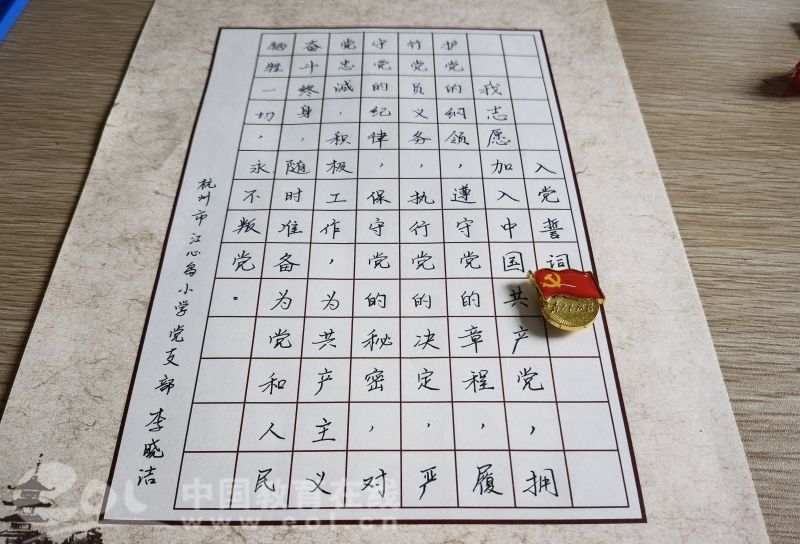 入党誓词
我志愿加入中国共产党，拥
护党的纲领，遵守党的章程，履
行党员义务，执行党的决定，严
守党的纪律，保守党的秘密，对
党忠诚，积极工作，为共产主义
奋斗终身，随时准备为党和人民
牺牲一切，永不叛党。
杭州市江心岛小学党支部 李晓洁
eol 中国教育在线
www.eol.cn